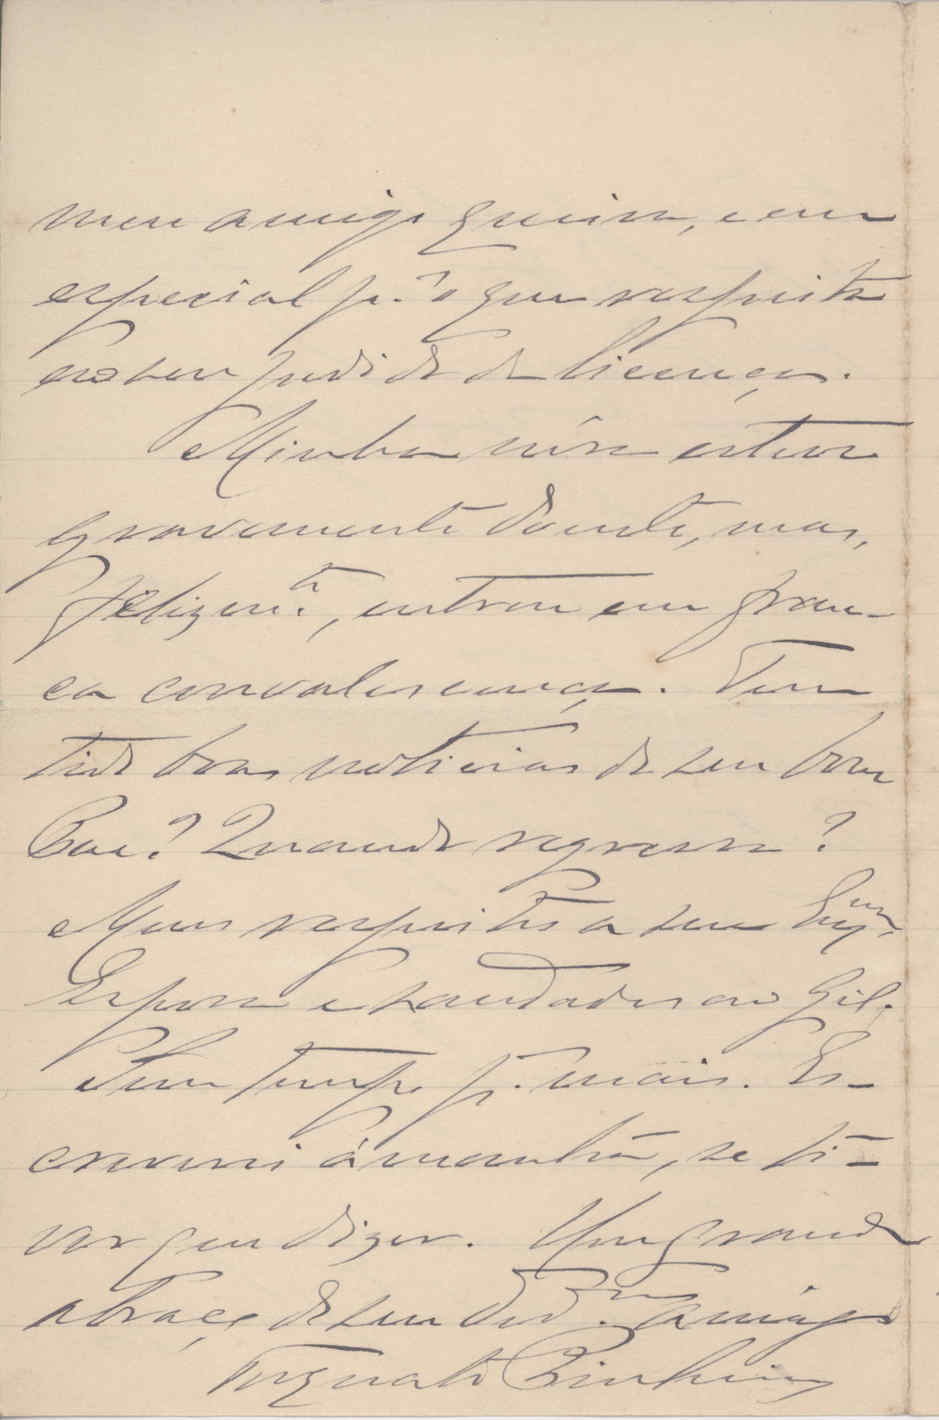 meu amigo queira, e em
especial p.ª o que respeita
ao seu pedido de licença.
Minha nóra esteve
gravemente doente, mas,
felizm.te, entrou em fran-
ca convalescença. Tem
tido boas noticias de seu bom
Pae? Quando regressa?
Meus respeitos a sua Exma.
Esposa e saudades ao Gil.
Sem tempo p.ª mais. Es-
creverei ámanhã, se ti-
ver que dizer. Um grande
abraço de seu Ded.mo amigo
Torquato Pinheiro